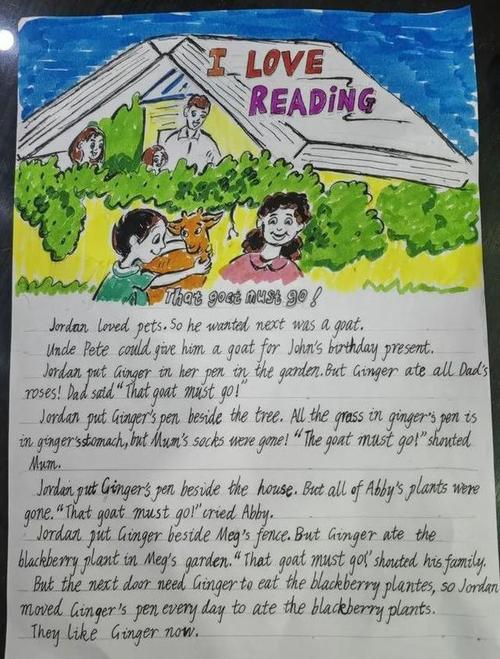 I LOVE
READING
That goat must go!
Jordan loved pets. So he wanted next was a goat.
Uncle Pete could give him a goat for John's birthday present.
Jordan put Ginger in her pen in the garden. But Ginger ate all Dad's
roses! Dad said "That goat must go!"
Jordan put Ginger's pen beside the tree. All the grass in ginger's pen is
in ginger's stomach, but Mum's socks were gone! "The goat must go!" shouted
Mum.
Jordan put Ginger's pen beside the house. But all of Abby's plants were
gone. "That goat must go!" cried Abby.
Jordan put Ginger beside Meg's fence. But Ginger ate the
blackberry plant in Meg's garden. "That goat must go!" shouted his family.
But the next door need Ginger to eat the blackberry plantes, so Jordan
moved Ginger's pen every day to ate the blackberry plants.
They like Ginger now.